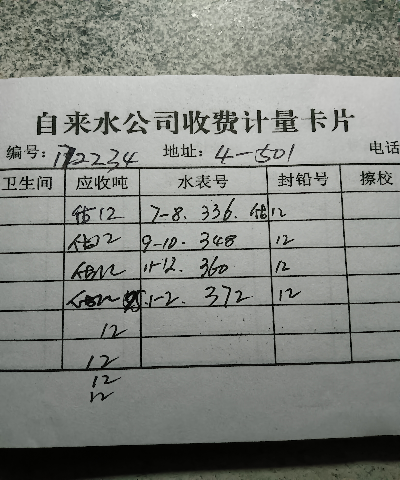 自来水公司收费计量卡片
编号: 172234 地址: 4-501 电话
卫生间 应收吨 水表号 封铅号 擦校
估12 7-8. 336. 估12
估12 9-10. 348 12
估12 11-12. 360 12
估12 1-2. 372 12
12
12
12
12